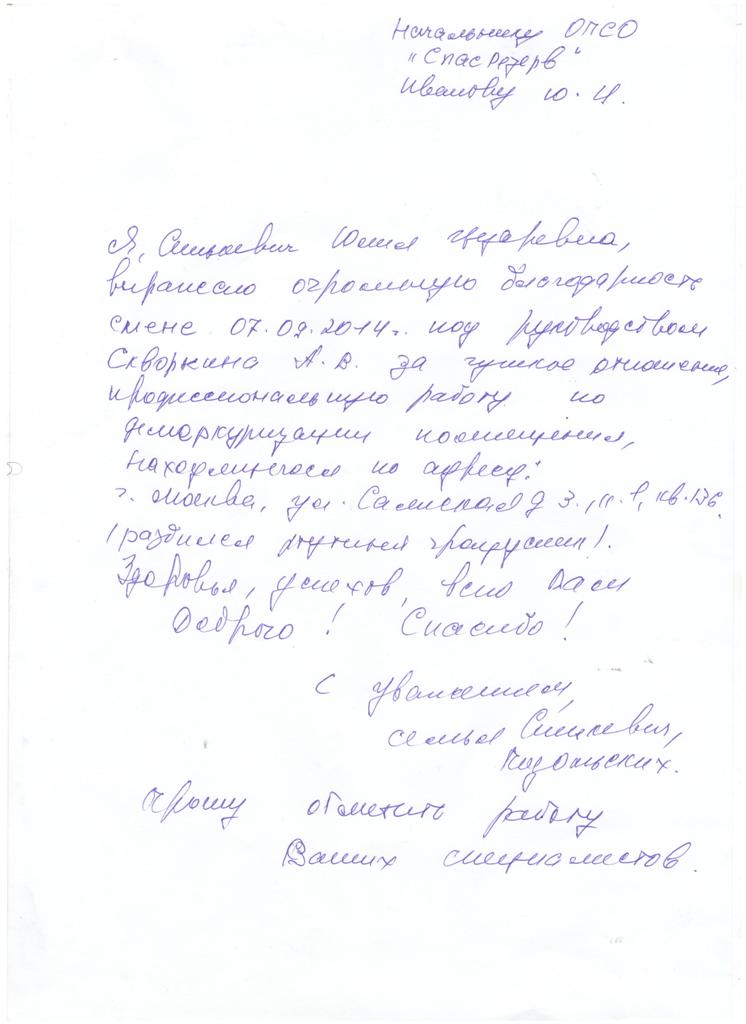 Начальнику ОПСО
"СпасРезерв"
Иванову Ю. И.
Я, Синкевич Юлия
выражаю огромную благодарность
смене 07.09.2014г. под руководством
Скворкина А. В. за чуткое отношение,
профессиональную работу по
демеркуризации помещения,
находящегося по адресу:
г. Москва, ул. д 3., кв. 136.
(разбился ртутный градусник).
Здоровья, успехов, всго Вам
Доброго! Спасибо!
С уважением,
семья Синкевич,
Подольских.
Прошу отметить работу
Ваших специалистов.